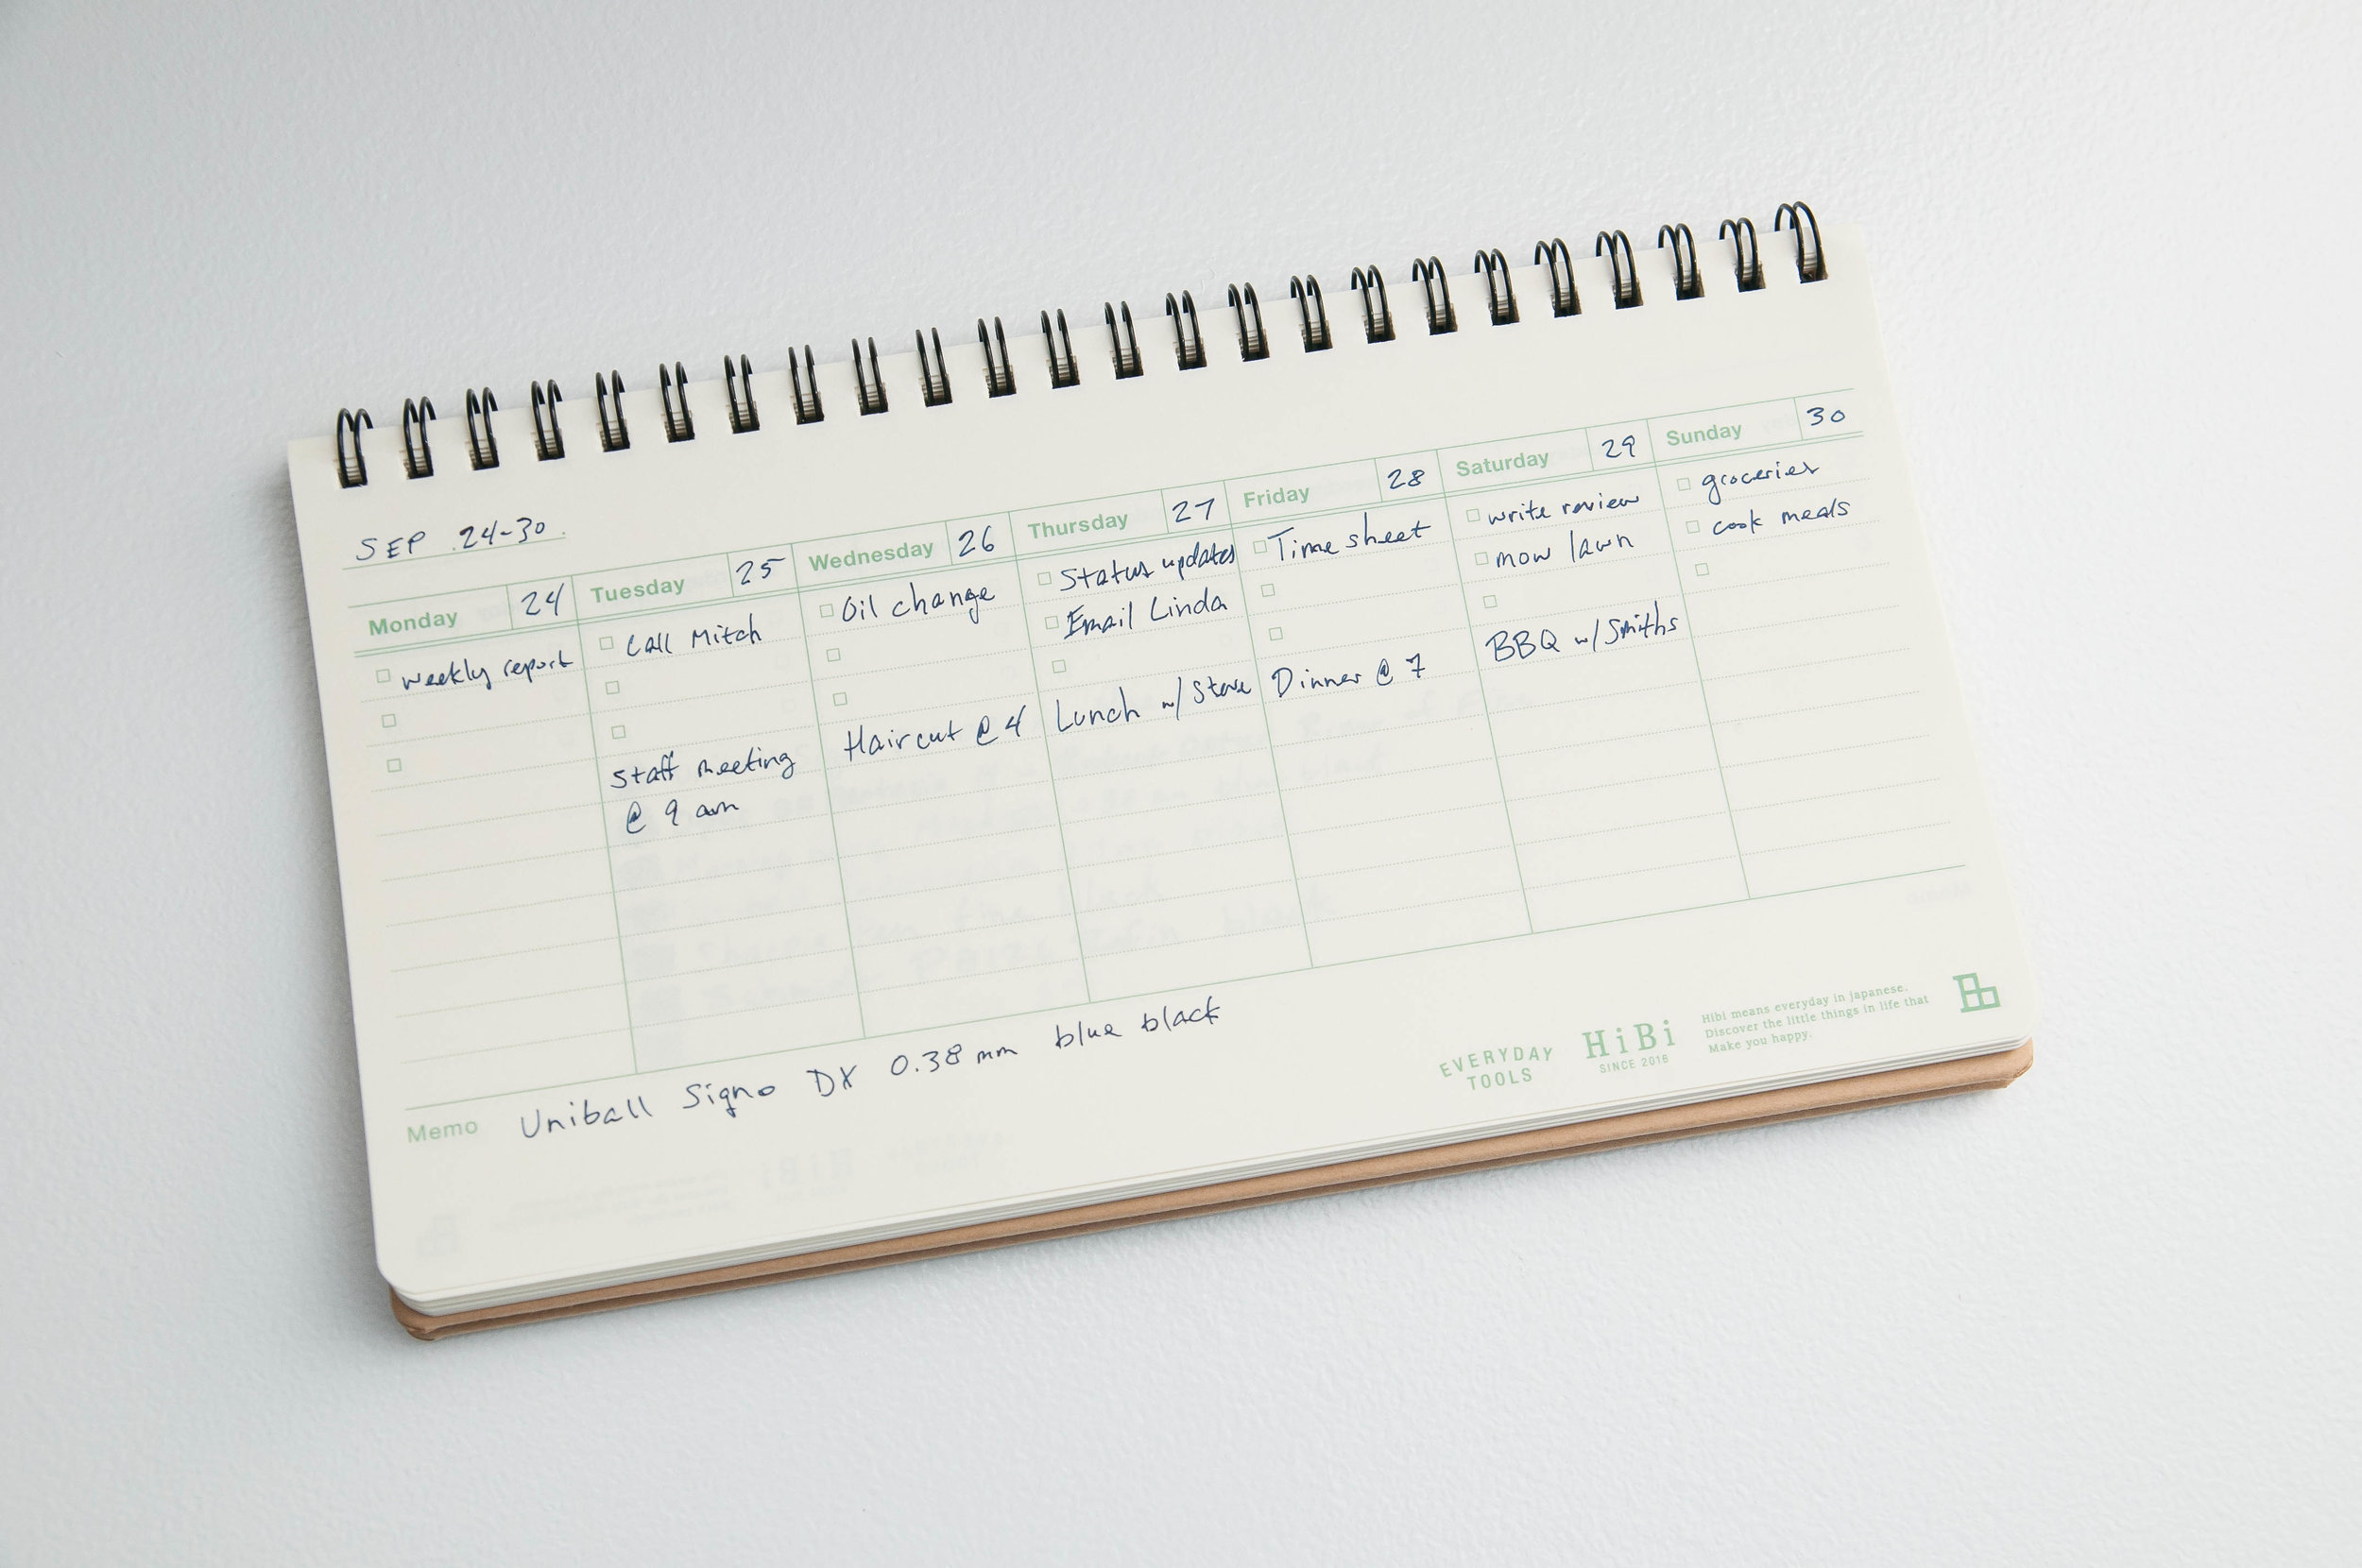 SEP 24-30
Monday 24
weekly report
Tuesday 25
Call Mitch
Staff meeting
@ 9 am
Wednesday 26
Oil change
Haircut @ 4
Thursday 27
Status updates
Email Linda
Lunch w/ Steve
Friday 28
Time sheet
Dinner @ 7
Saturday 29
write review
mow lawn
BBQ w/ Smiths
Sunday 30
groceries
cook meals
Memo Uniball Signo DX 0.38 mm blue black
EVERYDAY
TOOLS
HiBi
SINCE 2016
Hibi means everyday in Japanese.
Discover the little things in life that
Make you happy.